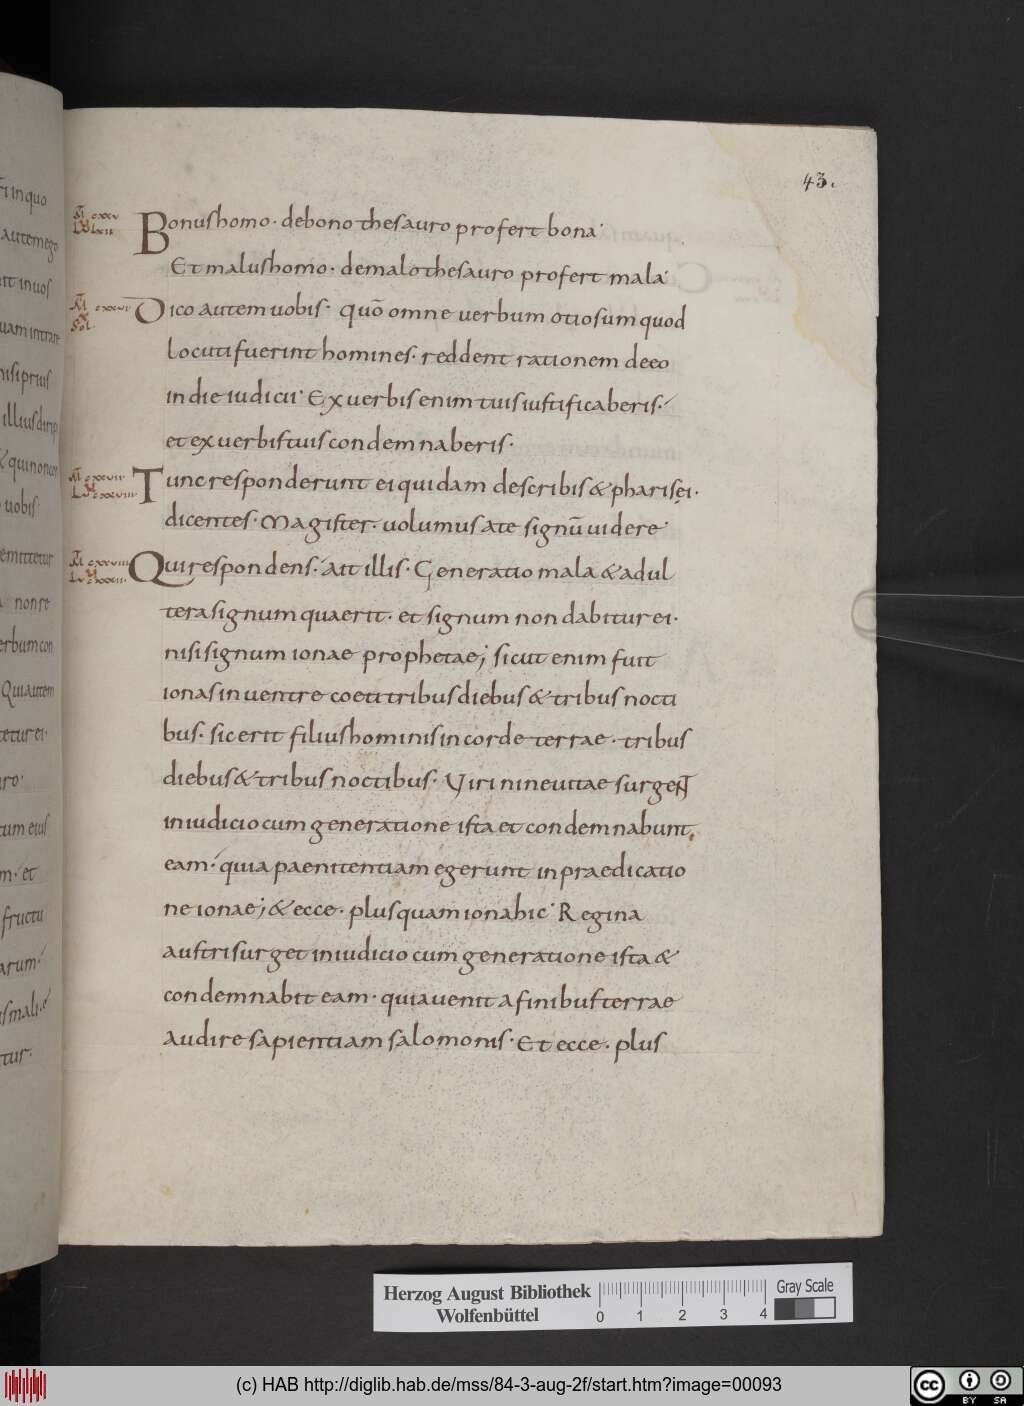 43.
Bonus homo· de bono thesauro profert bona·
Et malus homo· de malo thesauro profert mala·
Dico autem uobis· quō omne uerbum otiosum quod
locuti fuerint homines· reddent rationem de eo
in die iudicii· Ex uerbis enim tuis iustificaberis·
et ex uerbis tuis condemnaberis·
Tunc responderunt ei quidam de scribis & pharisęi·
dicentes· Magister· uolumus a te signū uidere·
Qui respondens· ait illis· Generatio mala & adul
tera signum quaerit· et signum non dabitur ei·
nisi signum ionae prophetae; sicut enim fuit
ionas in uentre coeti tribus diebus & tribus nocti
bus· sic erit filius hominis in corde terrae· tribus
diebus & tribus noctibus· Viri nineuitae surgent
in iudicio cum generatione ista et condemnabunt
eam· quia paenitentiam egerunt in praedicatio
ne ionae; & ecce· plus quam iona hic· Regina
austri surget in iudicio cum generatione ista &
condemnabit eam· quia uenit a finibus terrae
audire sapientiam salomonis· Et ecce· plus
Herzog August Bibliothek
Wolfenbüttel
0 1 2 3 4
Gray Scale
(c) HAB http://diglib.hab.de/mss/84-3-aug-2f/start.htm?image=00093
cc BY SA